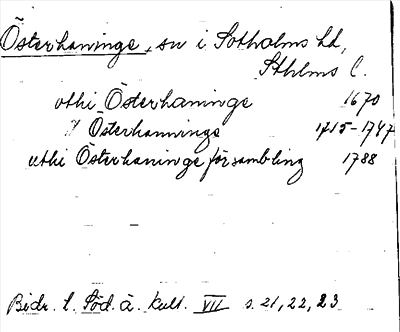 Österhaninge, sn i Sotholms hd,
Sthlms l.
uthi Österhaninge 1670
I Österhanninge 1715-1747
uthi Österhaninge försambling 1788
Bidr. t. Söd. ä. kult. VII s. 21, 22, 23